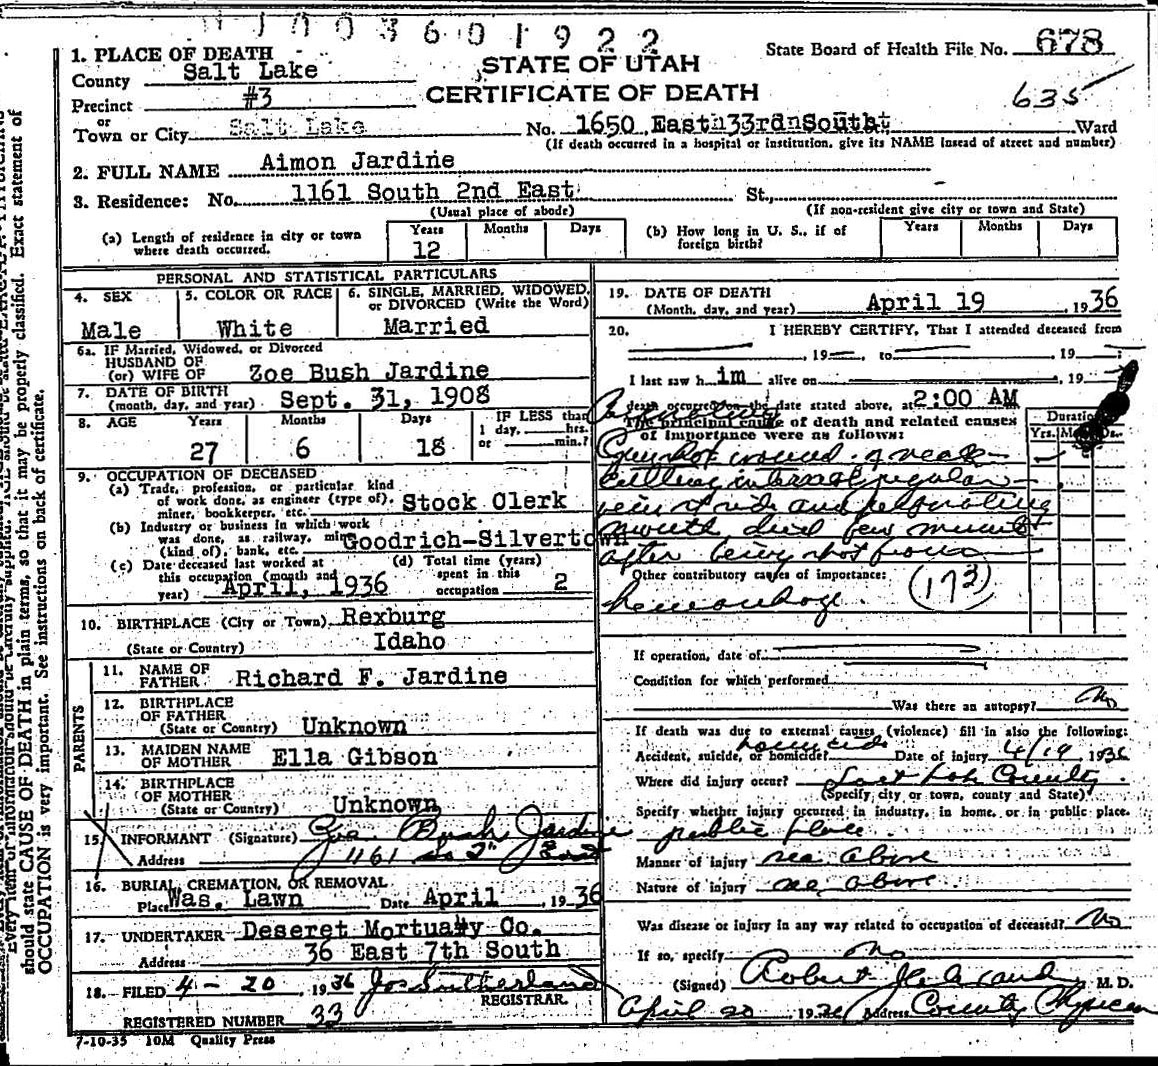 1003601922
State Board of Health File No. 678
635
STATE OF UTAH
CERTIFICATE OF DEATH
1. PLACE OF DEATH
County Salt Lake
Precinct #3
or
Town or City Salt Lake No. 1650 East 33rd South Ward
(If death occurred in a hospital or institution, give its NAME insead of street and number)
2. FULL NAME Aimon Jardine
3. Residence: No. 1161 South 2nd East St.,
(Usual place of abode) (If non-resident give city or town and State)
(a) Length of residence in city or town where death occurred. Years 12 Months Days
(b) How long in U. S., if of foreign birth? Years Months Days
PERSONAL AND STATISTICAL PARTICULARS
4. SEX Male
5. COLOR OR RACE White
6. SINGLE, MARRIED, WIDOWED, or DIVORCED (Write the Word) Married
6a. IF Married, Widowed, or Divorced
HUSBAND OF
(or) WIFE OF Zoe Bush Jardine
7. DATE OF BIRTH
(month, day, and year) Sept. 31, 1908
8. AGE Years 27 Months 6 Days 18
IF LESS than 1 day, hrs. or min.?
9. OCCUPATION OF DECEASED
(a) Trade, profession, or particular kind
of work done, as engineer (type of),
miner, bookkeeper, etc. Stock Clerk
(b) Industry or business in which work
was done, as railway, mine
(kind of), bank, etc. Goodrich-Silvertown
(c) Date deceased last worked at
this occupation (month and
year) April, 1936
(d) Total time (years)
spent in this
occupation 2
10. BIRTHPLACE (City or Town) Rexburg
(State or Country) Idaho
PARENTS
11. NAME OF
FATHER Richard F. Jardine
12. BIRTHPLACE
OF FATHER
(State or Country) Unknown
13. MAIDEN NAME
OF MOTHER Ella Gibson
14. BIRTHPLACE
OF MOTHER
(State or Country) Unknown
15. INFORMANT (Signature) Zoe Bush Jardine
Address 1161 So 2nd East
16. BURIAL, CREMATION, OR REMOVAL
Place Was. Lawn Date April, 1936
17. UNDERTAKER Deseret Mortuary Co.
Address 36 East 7th South
18. FILED 4-20, 1936 Jos Sutherland
REGISTRAR.
REGISTERED NUMBER 33
7-10-35 10M Quality Press
19. DATE OF DEATH
(Month, day, and year) April 19, 1936
20. I HEREBY CERTIFY, That I attended deceased from
, 19 , to , 19 ;
I last saw him alive on , 19
death occurred on the date stated above, at 2:00 AM
The principal cause of death and related causes
of importance were as follows:
Duration
Yrs. Mos. Ds.
Gunshot wound of neck
cutting internal jugular
vein rt side and perforating
mouth died few minutes
after being shot from
Other contributory causes of importance:
hemorrhage.
(173)
If operation, date of
Condition for which performed
Was there an autopsy? No
If death was due to external causes (violence) fill in also the following:
Accident, suicide, or homicide? homicide Date of injury 4/19, 1936
Where did injury occur? Salt Lake County
(Specify city or town, county and State)
Specify whether injury occurred in industry, in home, or in public place.
public place
Manner of injury see above
Nature of injury see above
Was disease or injury in any way related to occupation of deceased? No
If so, specify No
(Signed) Robert M. D.
April 20, 1936 Address County Physician
should state CAUSE OF DEATH in plain terms, so that it may be properly classified. Exact statement of
OCCUPATION is very important. See instructions on back of certificate.